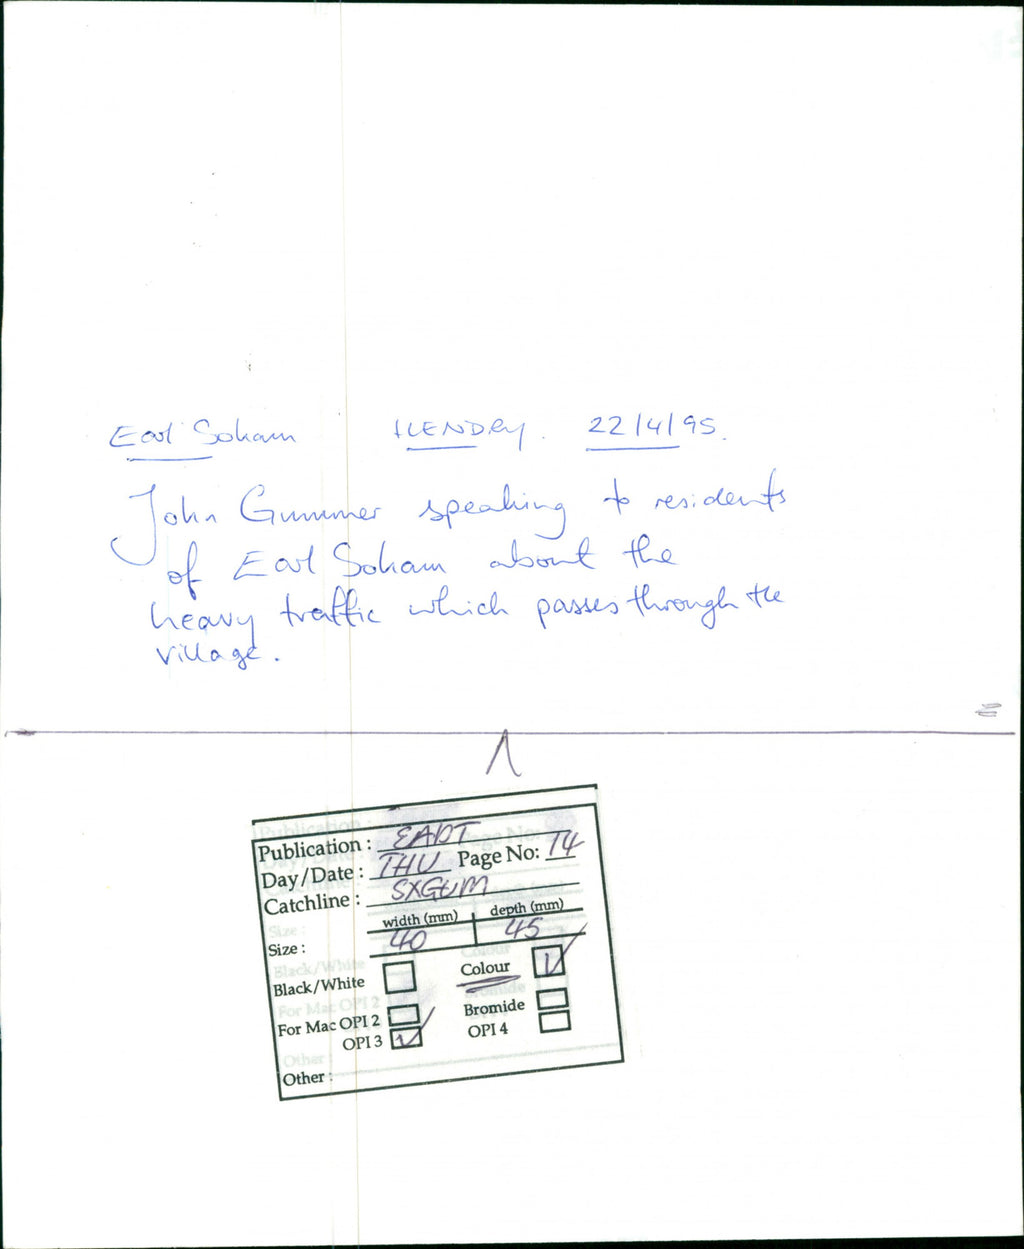 Earl Soham HENDRY. 22/4/95.
John Gummer speaking to residents
of Earl Soham about the
heavy traffic which passes through the
village.
Publication : EADT
Day/Date : THU Page No: 14
Catchline : SXGUM
width (mm) depth (mm)
Size : 40 45
Black/White Colour
For Mac OPI 2 Bromide
OPI 3 OPI 4
Other :